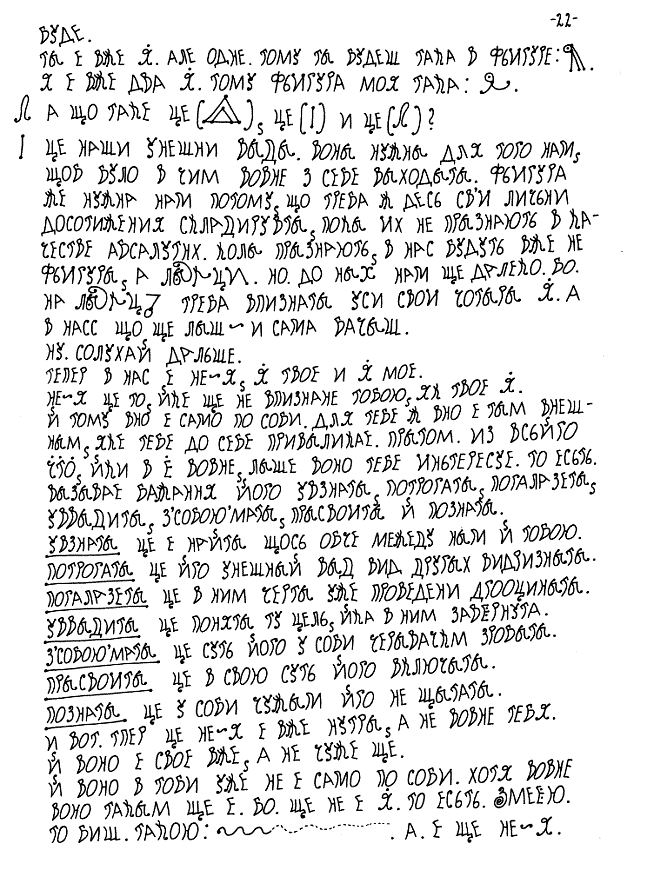 -22-
БУДЕ.
ТЫ Е ВЖЕ Я̇. АЛЕ ОДНЕ. ТОМУ ТЫ БУДЕШ ТАКА В ФЫГУРЕ: .
Я Е ВЖЕ ДВА Я̇. ТОМУ ФЫГУРА МОЯ ТАКА: .
А ЩО ТАКЕ ЦЕ ( ), ЦЕ (I) И ЦЕ ( )?
I ЦЕ НАШИ УНЕШНИ ВЫДЫ. ВОНЫ НУЖНЫ ДЛЯ ТОГО НАМ,
ЩОБ БУЛО В ЧИМ ВОВНЕ З СЕБЕ ВЫХОДЫТЫ. ФЫГУРА
ЖЕ НУЖНА НАМ ПОТОМУ, ЩО ТРЕБА Ж ДЕСЬ СВ'И ЛИЧЬНИ
ДОСОТИЖЕНИЯ СКЛАДИРУВТЫ, ПОКЫ ИХ НЕ ПРЫЗНАЮТЬ В КА-
ЧЕСТВЕ АБСАЛУТНХ. КОЛЫ ПРЫЗНАЮТЬ, В НАС БУДУТЬ ВЖЕ НЕ
ФЫГУРЫ, А . НО. ДО НЫХ НАМ ЩЕ ДАЛЕКО. БО.
НА ТРЕБА ВПИЗНАТЫ УСИ СВОИ ЧОТЫРЫ Я̇. А
В НАСС ЩО ЩЕ ЛЫШ~ И САМА БАЧЫШ.
НУ. СОЛУХАЙ ДАЛЬШЕ.
ТЕПЕР В НАС Е НЕ~Я, Я̇ ТВОЕ И Я̇ МОЕ.
НЕ~Я ЦЕ ТО, ЙКЕ ЩЕ НЕ ВПИЗНАНЕ ТОБОЮ, ЯК ТВОЕ Я̇.
Й ТОМУ ВНО Е САМО ПО СОБИ. ДЛЯ ТЕБЕ Ж ВНО Е ТЫМ ВНЕШ-
НЫМ, ЯКЕ ТЕБЕ ДО СЕБЕ ПРИВЫЛИКАЕ. ПРЫТОМ. ИЗ ВСЬЙГО
ЧТО, ЙКИ В Е ВОВНЕ, ЛЫШЕ ВОНО ТЕБЕ ИНЬТЕРЕСУЕ. ТО ЕСЬТЬ.
ВЫЗЫВАЕ БАЖАННЯ ЙОГО УВЗНАТЫ, ПОТРОГАТЫ, ПОГАЛАЗЕТЫ,
УВВЫДИТЫ, З'СОБОЮ'МАТЫ, ПРЫСВОИТЫ Й ПОЗНАТЫ.
УВЗНАТЫ ЦЕ Е НАЙТЫ ЩОСЬ ОБЧЕ МЕЖЕДУ НЫМ Й ТОБОЮ.
ПОТРОГАТЫ ЦЕ ЙГО УНЕШНЫЙ ВЫД ВИД ДРУГЫХ ВИДРИЗНЫТЫ.
ПОГАЛАЗЕТЫ ЦЕ В НИМ ЧЕРТЫ УЖЕ ПРОВЕДЕНИ ДГООЦИНЫТЫ.
УВВЫДИТЫ ЦЕ ПОНЯТЫ ТУ ЦЕЛЬ, ЙКА В НИМ ЗАВЕРНУТА.
З'СОБОЮ'МАТЫ ЦЕ СУТЬ ЙОГО У СОБИ ЧЕРЫВАЧКМ ЗРОБЫТЫ.
ПРЫСВОИТЫ ЦЕ В СВОЮ СУТЬ ЙОГО ВКЛЮЧЫТЫ.
ПОЗНАТЫ ЦЕ У СОБИ ЧУЖЫМ ЙГО НЕ ЩЫТАТЫ.
И ВОТ. ТПЕР ЦЕ НЕ~Я Е ВЖЕ НУТРЫ, А НЕ ВОВНЕ ТЕБЯ.
Й ВОНО Е СВОЕ ВЖЕ, А НЕ ЧУЖЕ ЩЕ.
Й ВОНО В ТОБИ УЖЕ НЕ Е САМО ПО СОБИ. ХОТЯ ВОВНЕ
ВОНО ТАКЫМ ЩЕ Е. БО. ЩЕ НЕ Е Я̇. ТО ЕСЬТЬ. ЗМЕЕЮ.
ТО БИШ. ТАКОЮ: . А. Е ЩЕ НЕ~Я.